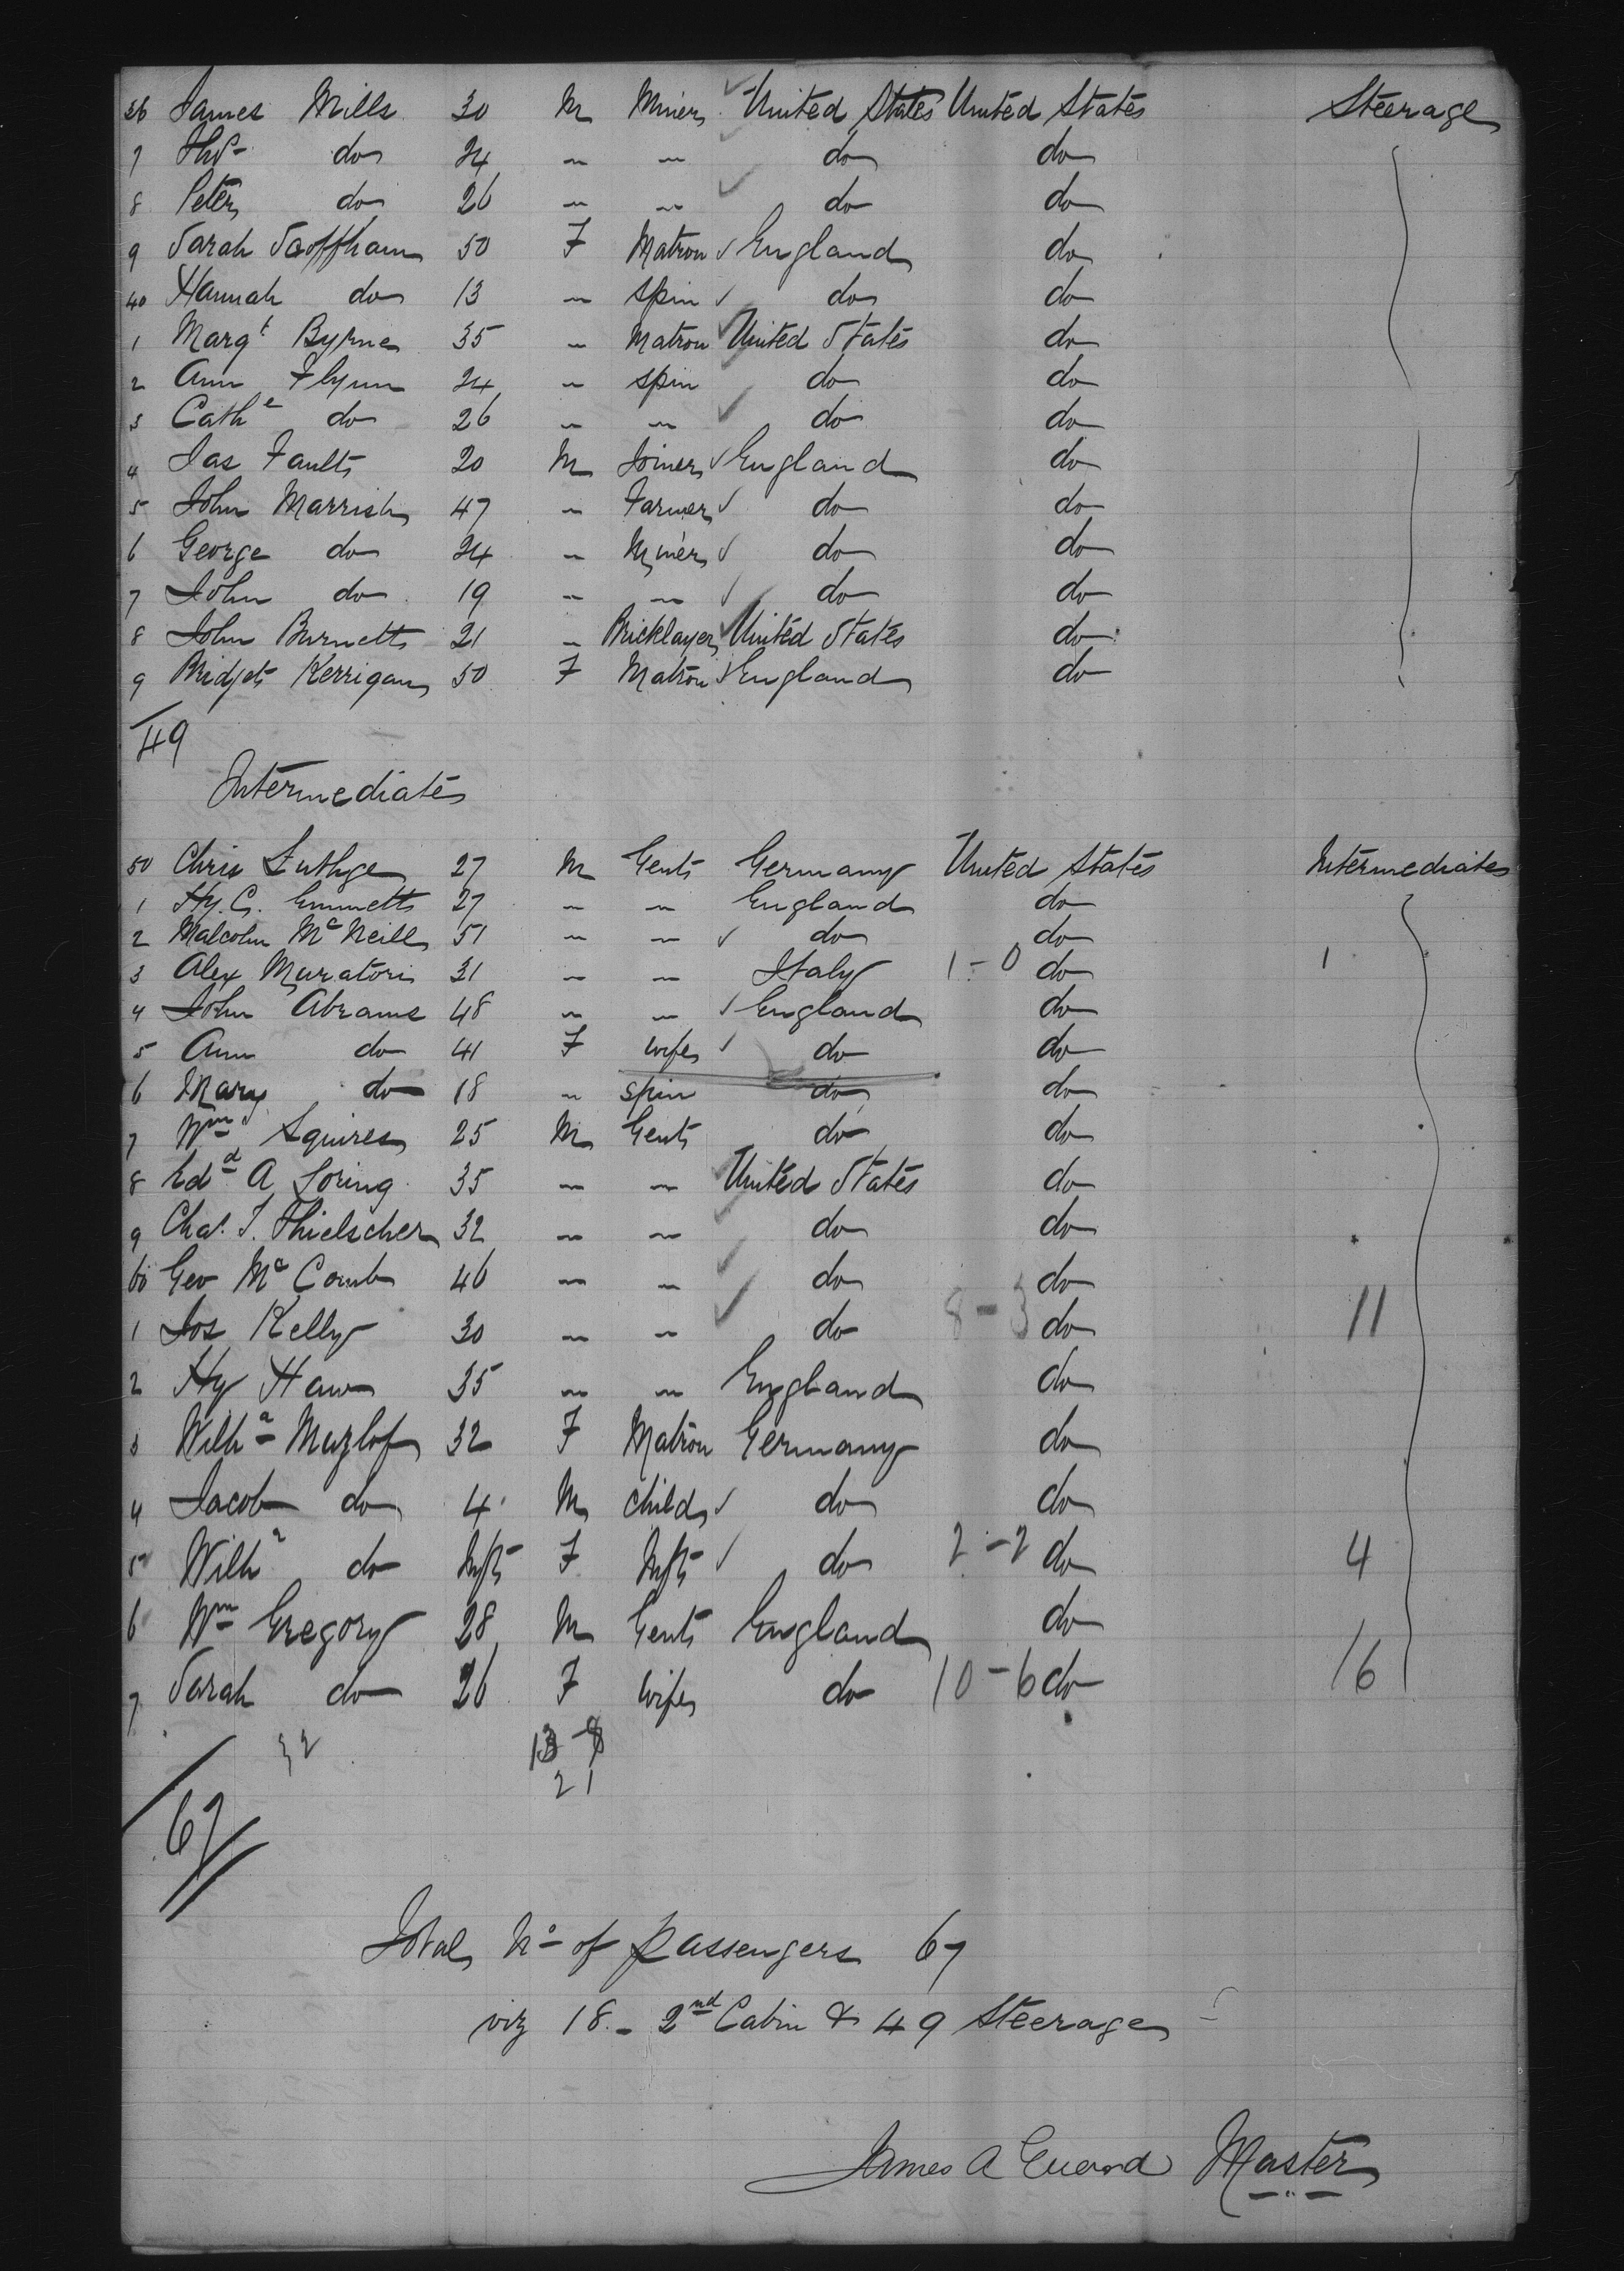 36 James Mills 30 M Miner United States United States Steerage
7 Thos do 24 " " do do
8 Peter do 26 " " do do
9 Sarah Scoffham 50 F Matron England do
40 Hannah do 13 " spin do do
1 Margt Byrne 35 " Matron United States do
2 Ann Flynn 24 " spin do do
3 Cathe do 26 " " do do
4 Jas Fault 20 M Joiner England do
5 John Marrish 47 " Farmer do do
6 George do 24 " Miner do do
7 John do 19 " " do do
8 John Burnett 21 " Bricklayer United States do
9 Bridget Kerrigan 50 F Matron England do
49
Intermediates
50 Chris Luthge 27 M Gent Germany United States Intermediates
1 Hy. G. Emmett 27 " " England do
2 Malcolm McNeill 51 " " do do
3 Alex Muratori 31 " " Italy 1-0 do 1
4 John Abrams 48 " " England do
5 Ann do 41 F wife do do
6 Mary do 18 " spin do do
7 Wm Squires 25 M Gent do do
8 Edd A Loring 35 " " United States do
9 Chas. T. Thielscher 32 " " do do
60 Geo McComb 46 " " do do
1 Jos Kelly 30 " " do 8-3 do 11
2 Hy Haw 35 " " England do
3 Wilha Mazlof 32 F Matron Germany do
4 Jacob do 4 M child do do
5 Wilha do Inft F Inft do 2-2 do 4
6 Wm Gregory 28 M Gent England do
7 Sarah do 26 F wife do 10-6 do 16
32 13-8
21
67
Total No of passengers 67
viz 18 - 2nd Cabin & 49 Steerage
James A Guard Master